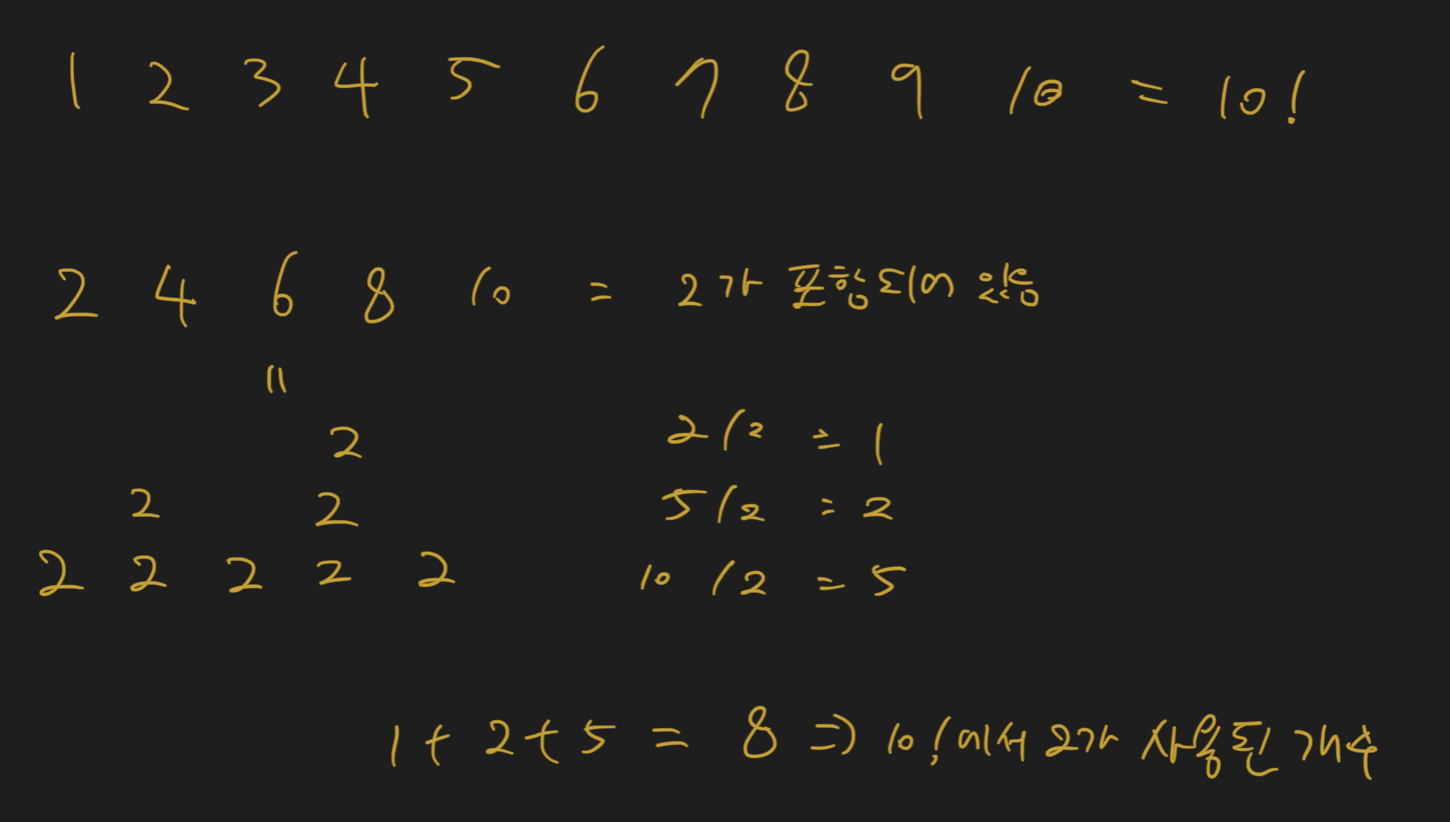 1 2 3 4 5 6 7 8 9 10 = 10!
2 4 6 8 10 = 2가 포함되어 있음
=
2 2/2 = 1
2 2 5/2 = 2
2 2 2 2 2 10/2 = 5
1+2+5 = 8 => 10!에서 2가 사용된 개수